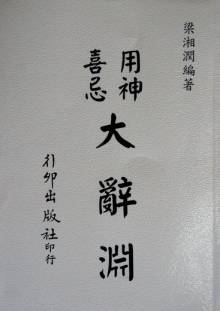 梁湘潤編著
用神
喜忌
大辭淵
行卯出版社印行